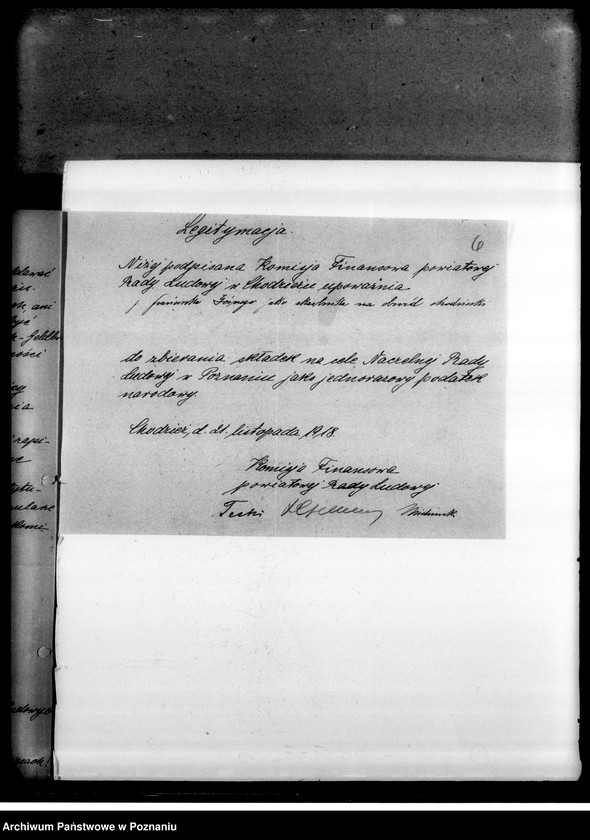 Legitymacja.
6
Niżej podpisana Komisja Finansowa powiatowej
Rady Ludowej w Chodzieżu upoważnia
jako skarbnika na obwód chodzieski
do zbierania składek na cele Naczelnej Rady
Ludowej w Poznaniu jako jednorazowy podatek
narodowy.
Chodzież, d. 21. listopada 1918.
Komisja Finansowa
powiatowej Rady Ludowej
Teski
Archiwum Państwowe w Poznaniu